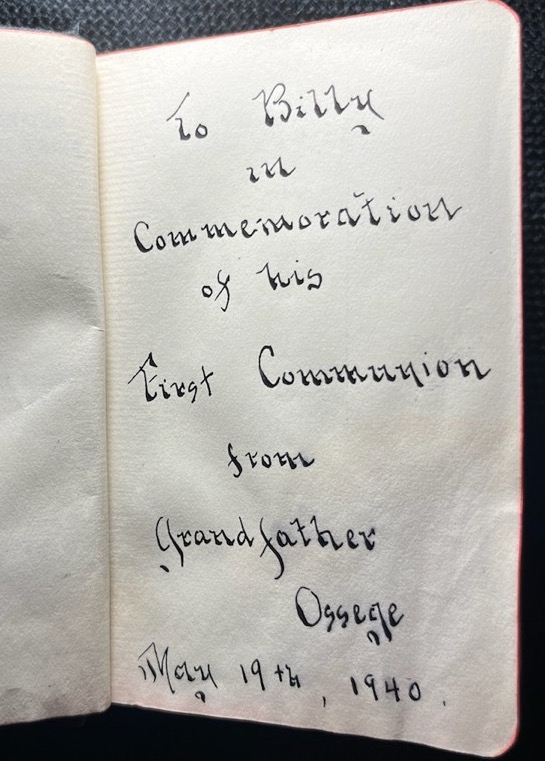 To Billy
in
Commemoration
of his
First Communion
from
Grandfather
Ossege
May 19th, 1940.